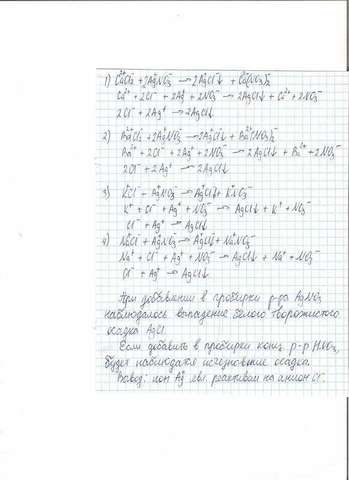 1) CaCl₂ + 2AgNO₃ → 2AgCl↓ + Ca(NO₃)₂
Ca²⁺ + 2Cl⁻ + 2Ag⁺ + 2NO₃⁻ → 2AgCl↓ + Ca²⁺ + 2NO₃⁻
2Cl⁻ + 2Ag⁺ → 2AgCl↓
2) BaCl₂ + 2AgNO₃ → 2AgCl↓ + Ba(NO₃)₂
Ba²⁺ + 2Cl⁻ + 2Ag⁺ + 2NO₃⁻ → 2AgCl↓ + Ba²⁺ + 2NO₃⁻
2Cl⁻ + 2Ag⁺ → 2AgCl↓
3) KCl + AgNO₃ → AgCl↓ + KNO₃
K⁺ + Cl⁻ + Ag⁺ + NO₃⁻ → AgCl↓ + K⁺ + NO₃⁻
Cl⁻ + Ag⁺ → AgCl↓
4) NaCl + AgNO₃ → AgCl↓ + NaNO₃
Na⁺ + Cl⁻ + Ag⁺ + NO₃⁻ → AgCl↓ + Na⁺ + NO₃⁻
Cl⁻ + Ag⁺ → AgCl↓
При добавлении в пробирки р-ра AgNO₃
наблюдалось выпадение белого творожистого
осадка AgCl.
Если добавить в пробирки конц. р-р HNO₃,
будет наблюдаться исчезновение осадка.
Вывод: ион Ag⁺ явл. реактивом на анион Cl⁻.